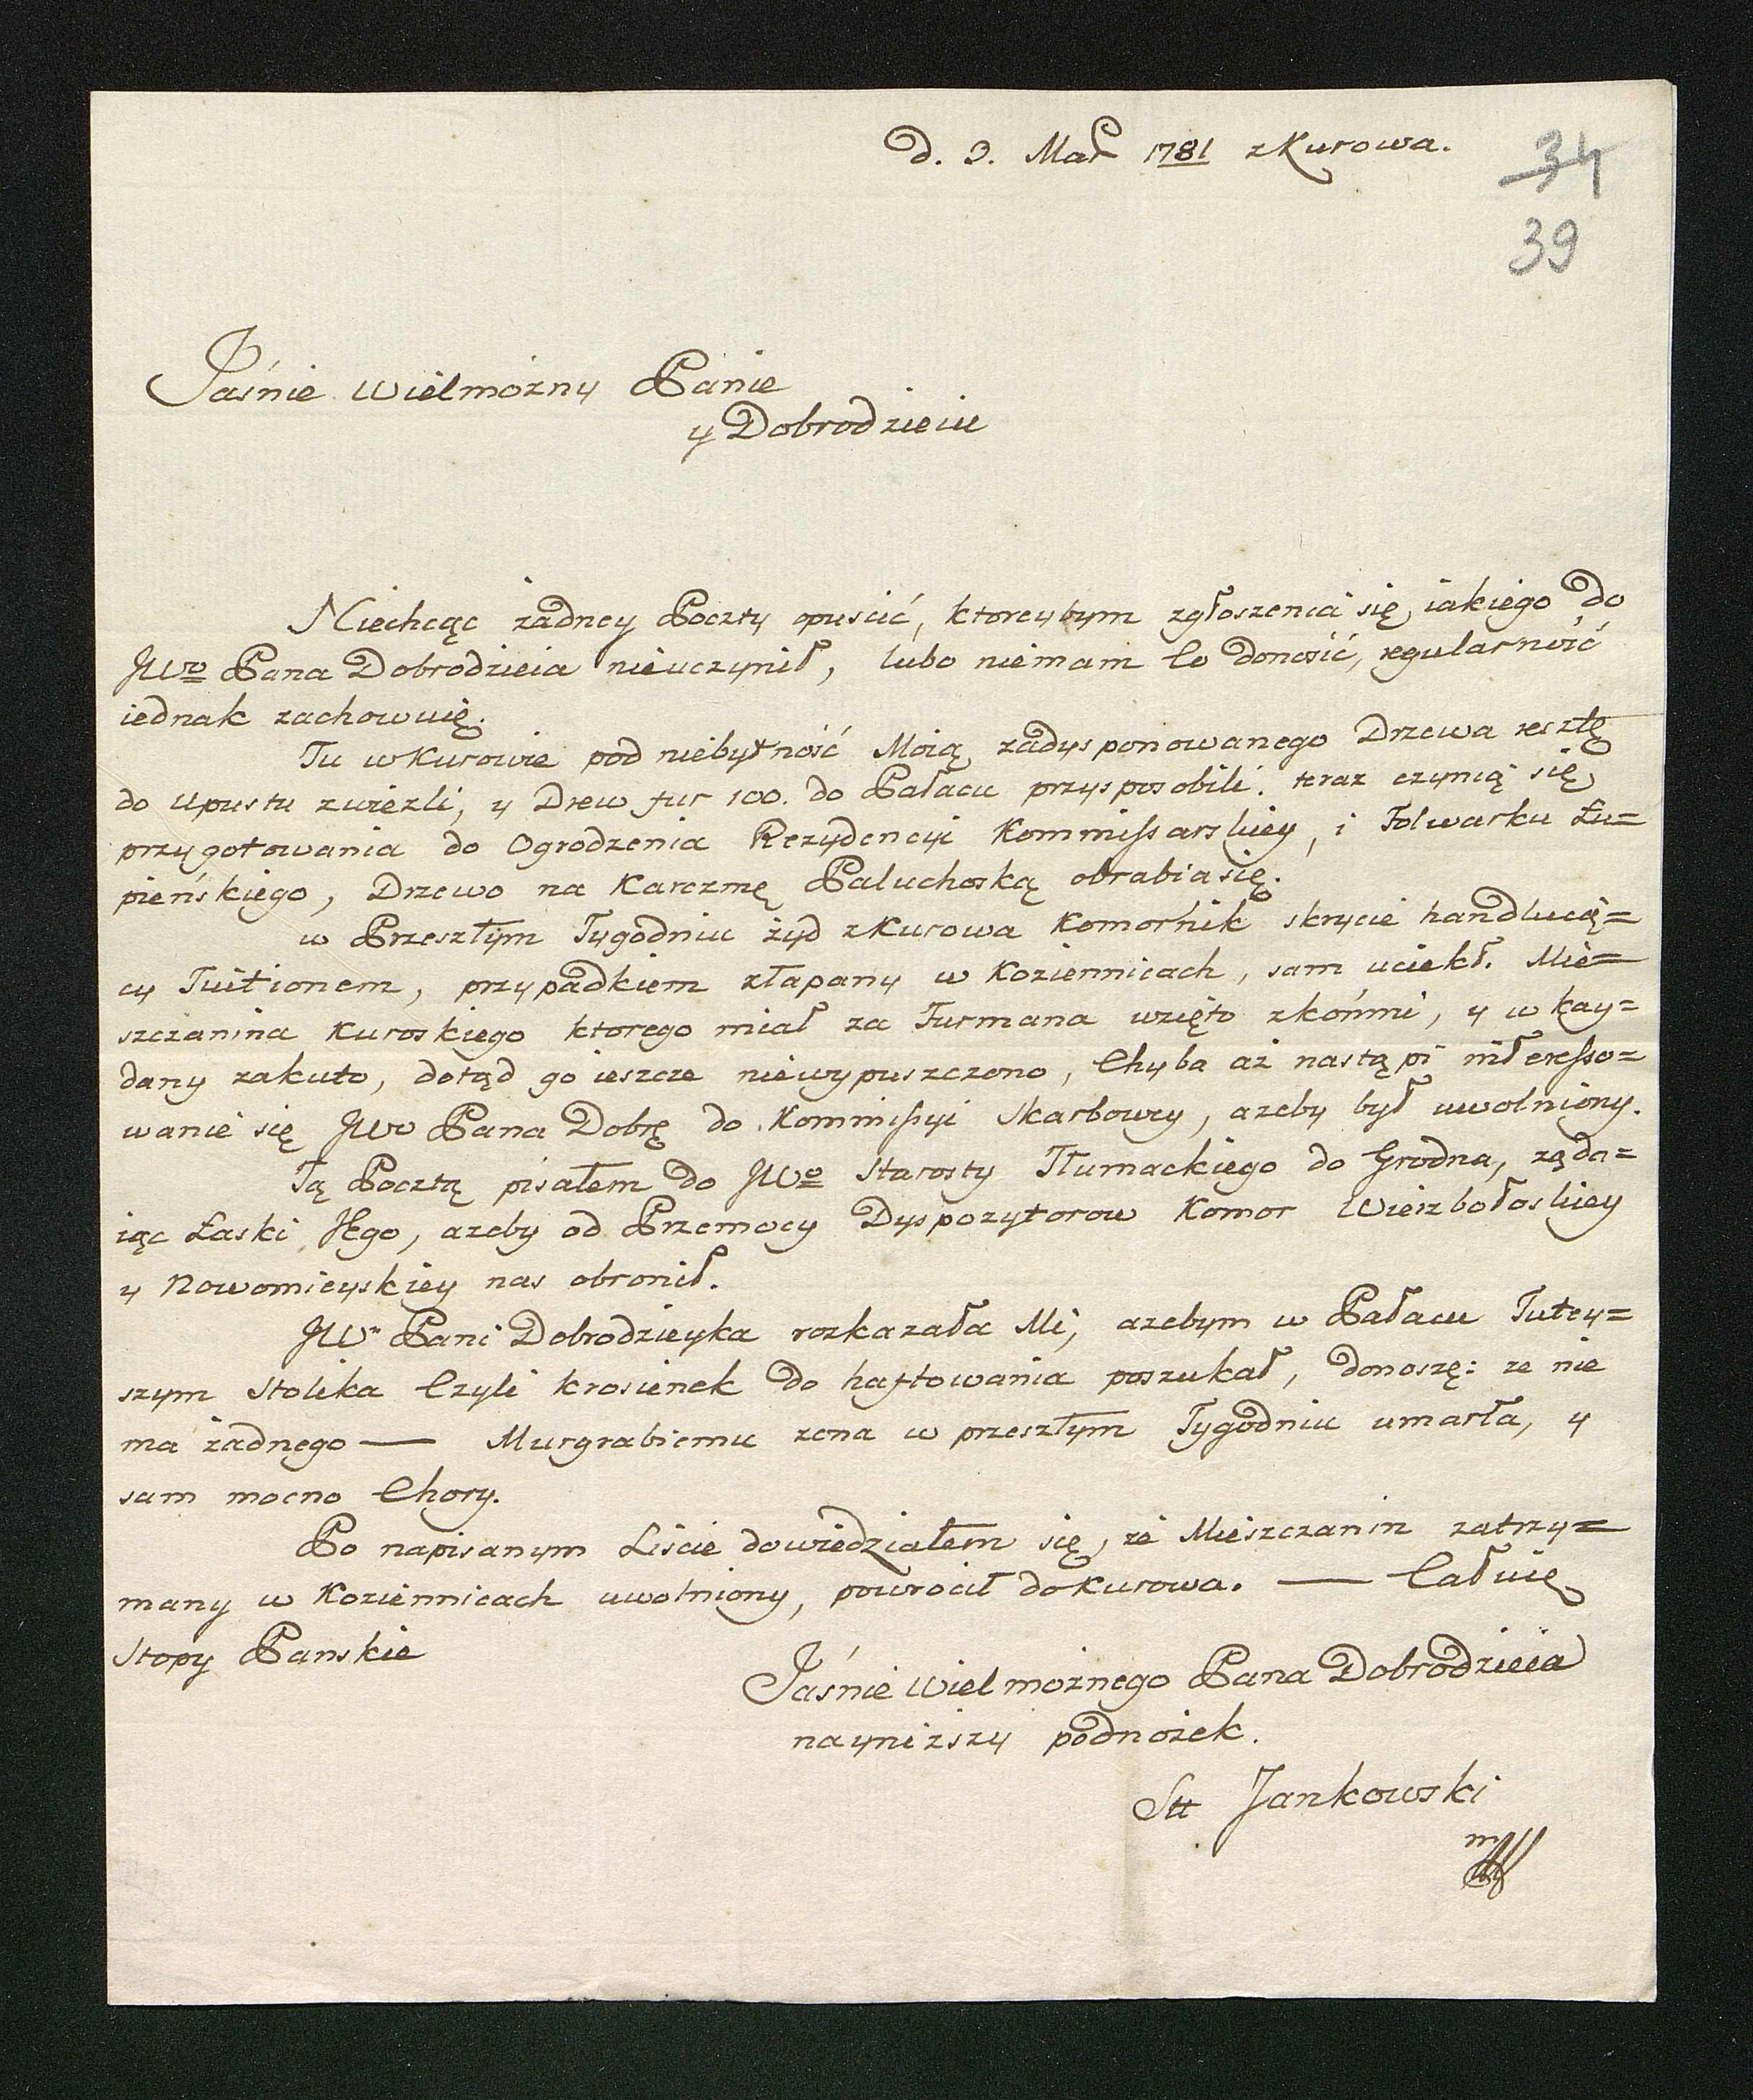 d. 3. Mar 1781 z Kurowa.
34
39
Jaśnie Wielmożny Panie
y Dobrodzieiu
Niechcąc żadney Poczty opuścić, ktoreybym zgłoszenia się iakiego do
JWo Pana Dobrodzieia nieuczynił, lubo niemam Co donosić, regularność
iednak zachowuię.
Tu w Kurowie pod niebytność Moią zadysponowanego Drzewa resztę
do Upustu zwiezli, y Drew fur 100. do Pałacu przysposobili. teraz czynią się
przygotowania do Ogrodzenia Rezydencyi Kommissarskiey, i Folwarku Łu=
pieńskiego, Drzewo na Karczmę Paluchoską obrabia się.
w Przeszłym Tygodniu żyd z Kurowa Komornik skrycie handluią=
cy Tuitionem, przypadkiem złapany w Koziennicach, sam uciekł. Mie=
szczanina Kuroskiego ktorego miał za Furmana wzięto z końmi, y w kay=
dany zakuto, dotąd go ieszcze niewypuszczono, Chyba aż nastąpi interesso=
wanie się JWo Pana Dobrę do Kommissyi Skarbowey, azeby był uwolniony.
Tą Pocztą pisałem do JWo Starosty Tłumackiego do Grodna, ząda=
iąc Łaski JEgo, azeby od Przemocy Dyspozytorow Komor Wierzbołoskiey
y Nowomieyskiey nas obronił.
JW Pani Dobrodzieyka rozkazała Mi, azebym w Pałacu Tutey=
szym Stolika Czyli krosienek do haftowania poszukał, donoszę: ze nie
ma żadnego — Murgrabiemu zona w przeszłym Tygodniu umarła, y
sam mocno Chory.
Po napisanym Liscie dowiedziałem się, że Mieszczanin zatrzy=
many w Koziennicach uwolniony, powrocił do Kurowa. — Całuię
Stopy Panskie
Jaśnie Wielmożnego Pana Dobrodzieia
nayniższy podnożek.
Stt Jankowski